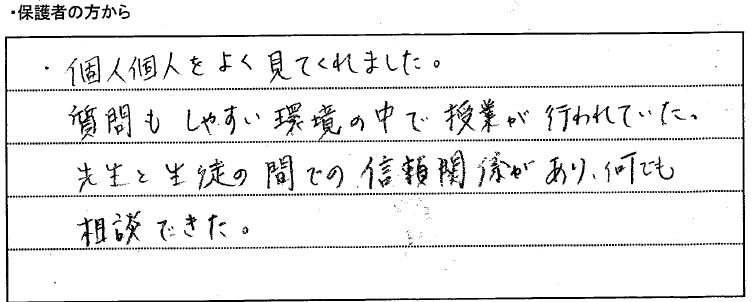 ・保護者の方から
・個人個人をよく見てくれました。
質問もしやすい環境の中で授業が行われていた。
先生と生徒の間での信頼関係があり、何でも
相談できた。